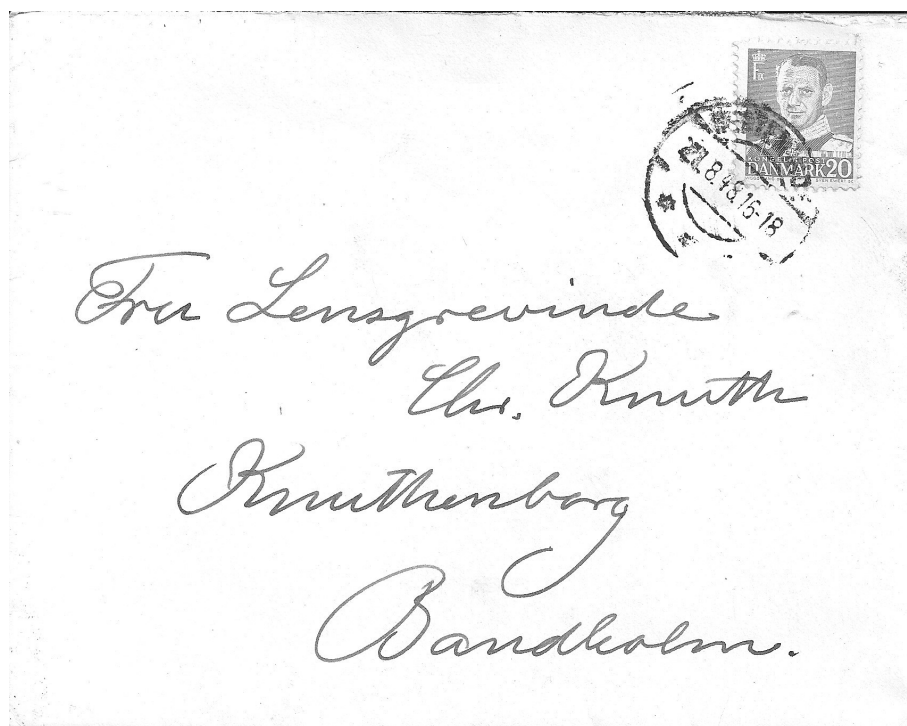 KONGELIG POST
DANMARK 20
8.48.16-18
Fru Lensgrevinde
Chr. Knuth
Knuthenborg
Bandholm.